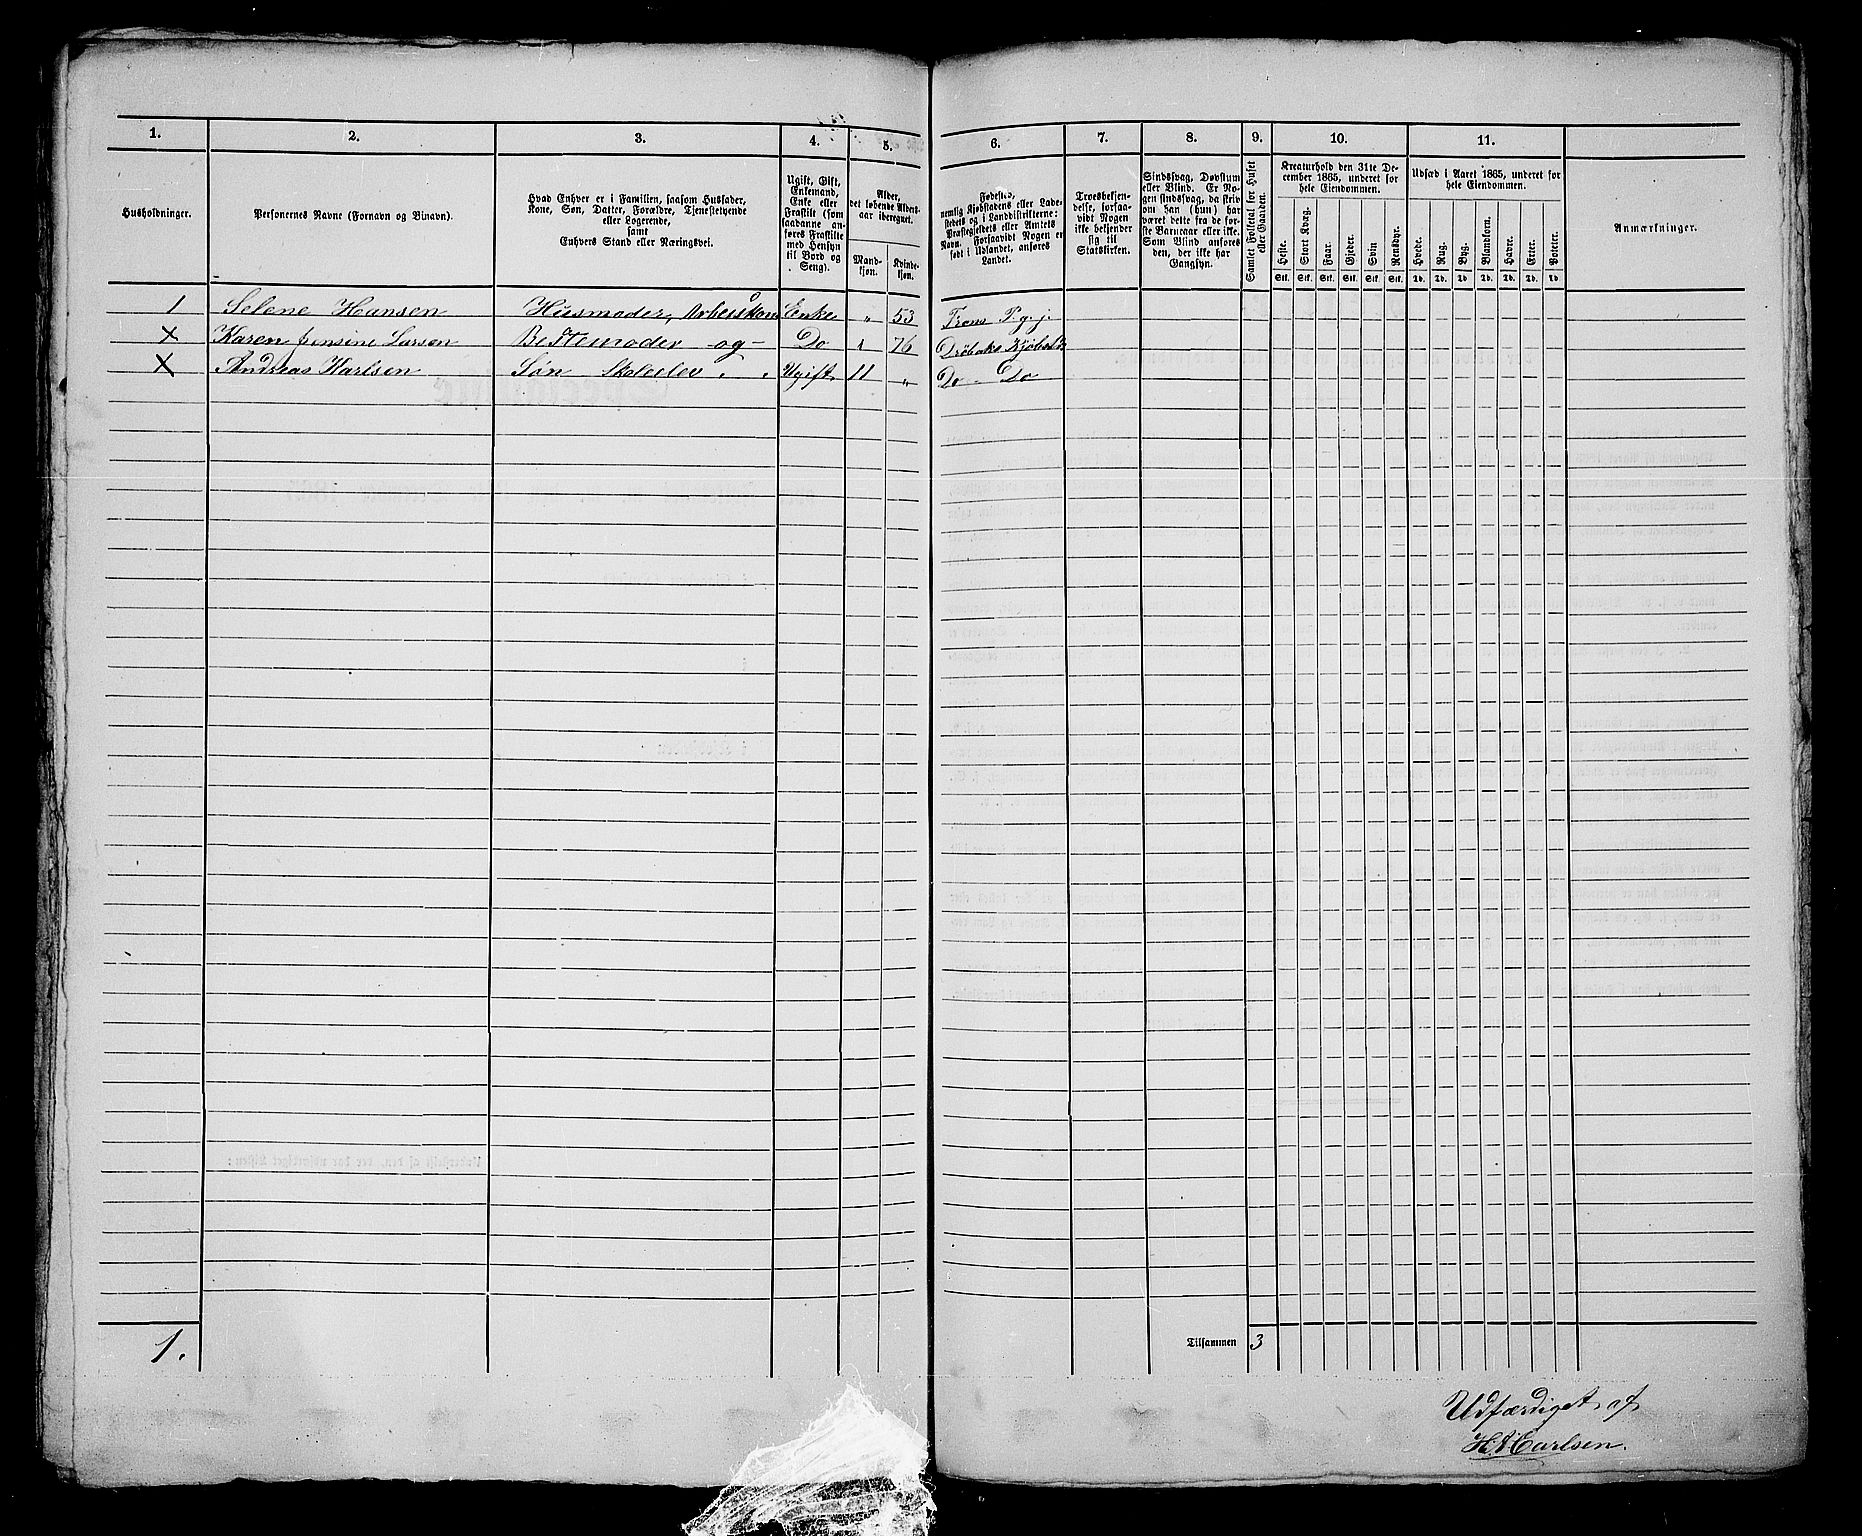 1. 2. 3. 4. 5. 6. 7. 8. 9. 10. 11.
Husholdninger.
Personernes Navne (Fornavn og Binavn).
Hvad Enhver er i Familien, saasom Husfader,
Kone, Søn, Datter, Forældre, Tjenestetyende
eller Logerende,
samt
Enhvers Stand eller Næringsvei.
Ugift, Gift,
Enkemand,
Enke eller
Fraskilt (som
saadanne an-
føres Fraskilte
med Hensyn
til Bord og
Seng).
Alder,
det løbende Alders-
aar iberegnet.
Mand-
kjøn.
Kvinde-
kjøn.
Fødested,
nemlig Kjøbstadens eller Lade-
stedets og i Landdistrikterne:
Præstegjeldets eller Amtets
Navn. Forsaavidt Nogen er
født i Udlandet, anføres
Landet.
Troesbekjen-
delse, forsaa-
vidt Nogen
ikke bekjender
sig til
Statskirken.
Sindssvag, Døvstum
eller Blind. Er No-
gen sindssvag, da skriv
om han (hun) har
været dette fra de før-
ste Barneaar eller ikke.
Som Blind anføres
den, der ikke har
Gangsyn.
Samlet Folketal for Huset
eller Gaarden.
Kreaturhold den 31te De-
cember 1865, underet for
hele Eiendommen.
Heste. Stort Kvæg. Faar. Gjeder. Svin Rensdyr.
Stk. Stk. Stk. Stk. Stk. Stk.
Udsæd i Aaret 1865, underet for
hele Eiendommen.
Hvede. Rug. Byg. Blandkorn. Havre. Erter. Poteter.
Td. Td. Td. Td. Td. Td. Td
Anmærkninger.
1 Selene Hansen Husmoder, Enke „ 53
X Karen Jensine Larsen Bestemoder -og- Do „ 76 Drøbaks Kjøbst.
X Andreas Karlsen Søn Skoleelev Ugift 11 „ Do - Do
1.
Tilsammen 3
Udfærdiget af
H A Carlsen.